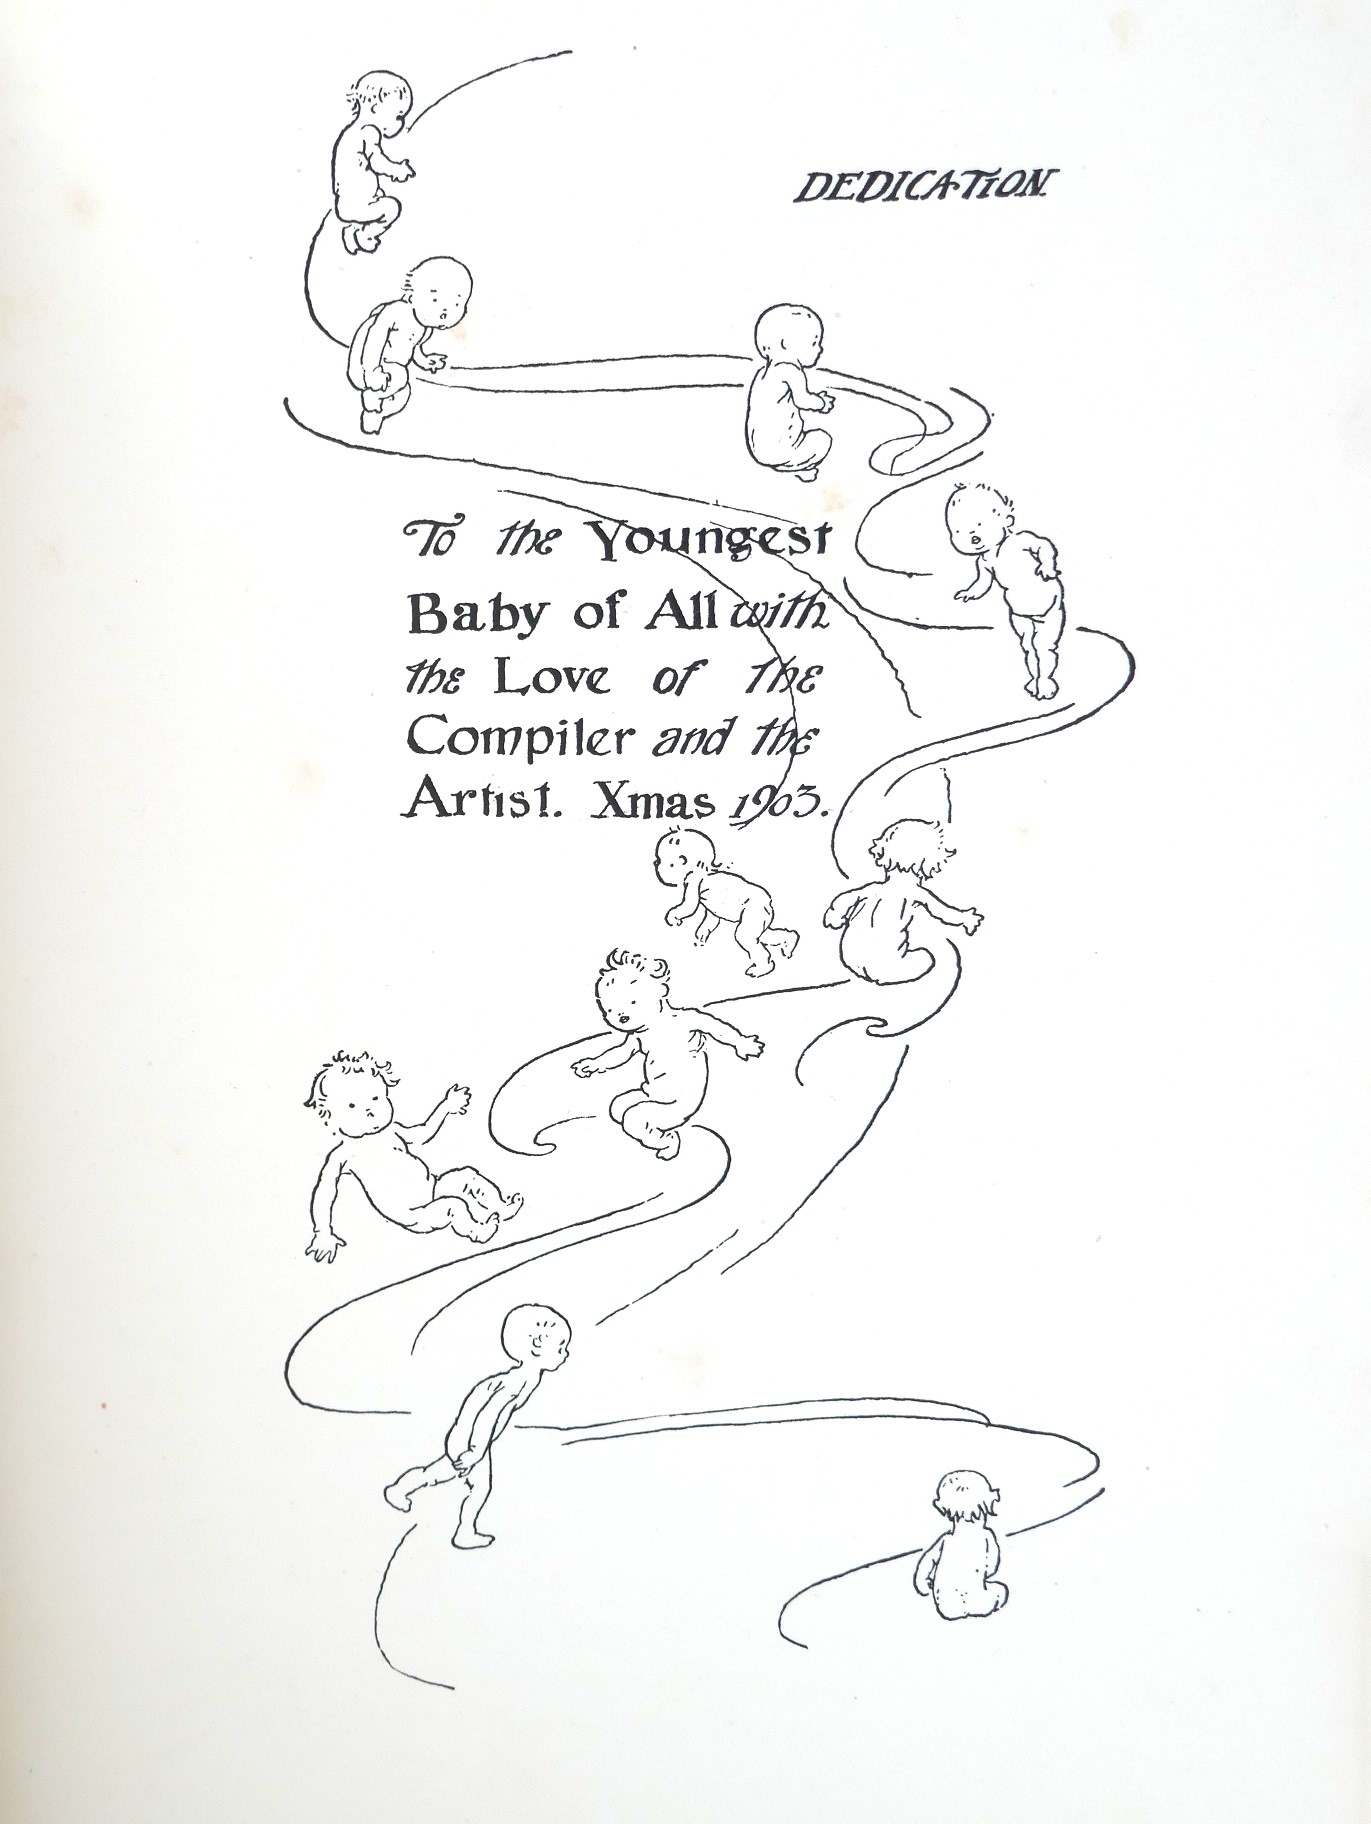 DEDICATION.
To the Youngest
Baby of All with
the Love of the
Compiler and the
Artist. Xmas 1903.